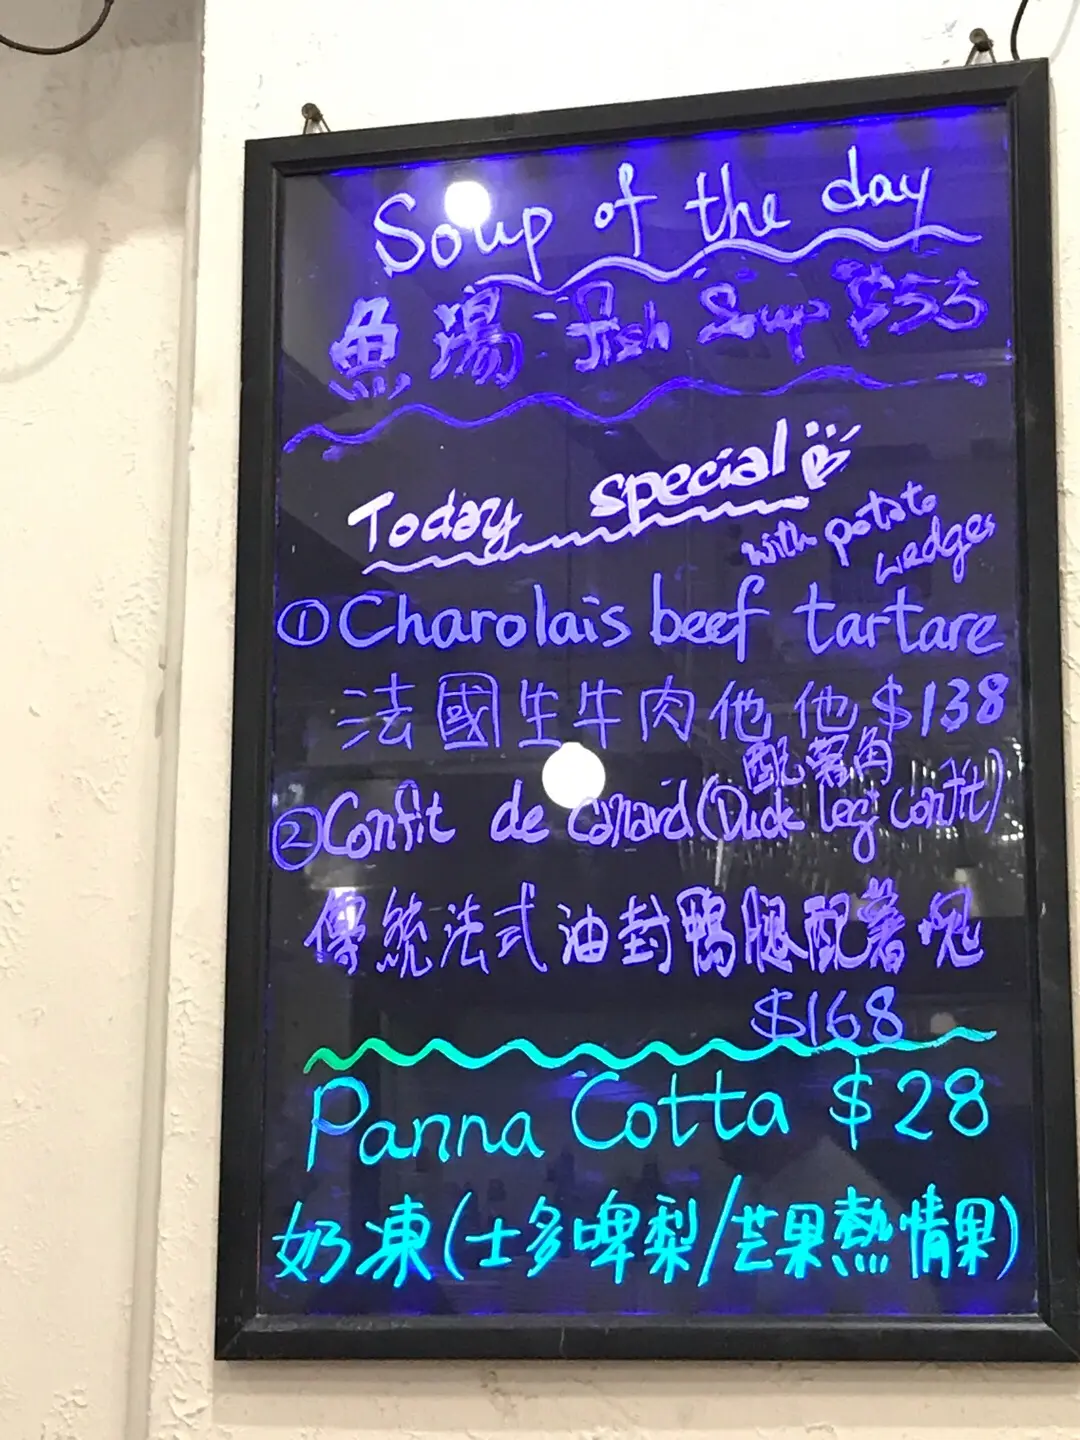 Soup of the day
魚湯 - Fish Soup $55
Today special
with potato
wedges
①Charolais beef tartare
法國生牛肉他他 $138
配薯角
②Confit de canard (Duck leg confit)
傳統法式油封鴨腿配薯塊
$168
Panna Cotta $28
奶凍(士多啤梨/芒果熱情果)